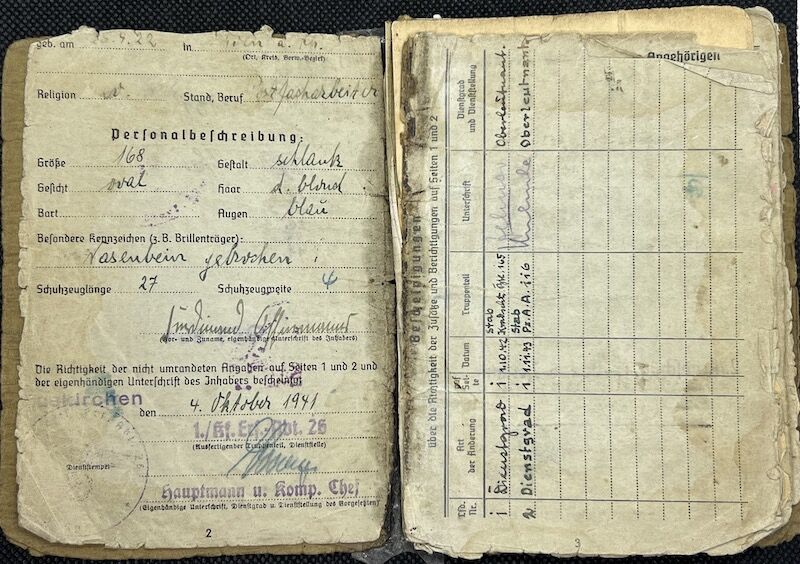 geb. am 4. 22 in
(Ort, Kreis, Verw.-Bezirk)
Religion ev. Stand, Beruf Postfacharbeiter
Personalbeschreibung:
Größe 168 Gestalt schlank
Gesicht oval Haar d. blond
Bart Augen blau
Besondere Kennzeichen (z. B. Brillenträger):
Nasenbein gebrochen
Schuhzeuglänge 27 Schuhzeugweite 4
Ferdinand
(Vor- und Zuname, eigenhändige Unterschrift des Inhabers)
Die Richtigkeit der nicht umrandeten Angaben auf Seiten 1 und 2 und
der eigenhändigen Unterschrift des Inhabers bescheinigt
den 4. Oktober 1941
1./Kf. Abt. 26
(Ausfertigender Truppenteil, Dienststelle)
Dienststempel
Hauptmann u. Komp. Chef
(Eigenhändige Unterschrift, Dienstgrad u. Dienststellung des Vorgesetzten)
2
Angehörigen
Bescheinigungen
über die Richtigkeit der Zusätze und Berichtigungen auf Seiten 1 und 2
Lfd. Nr. Art der Änderung auf Sei- te Datum Truppenteil Unterschrift Dienstgrad und Dienststellung
1 Dienstgrad 1 1.10.42 Stab 165 Oberleutnant
2 Dienstgrad 1 1.11.43 Stab Pz. A. A. 116 Oberleutnant
3